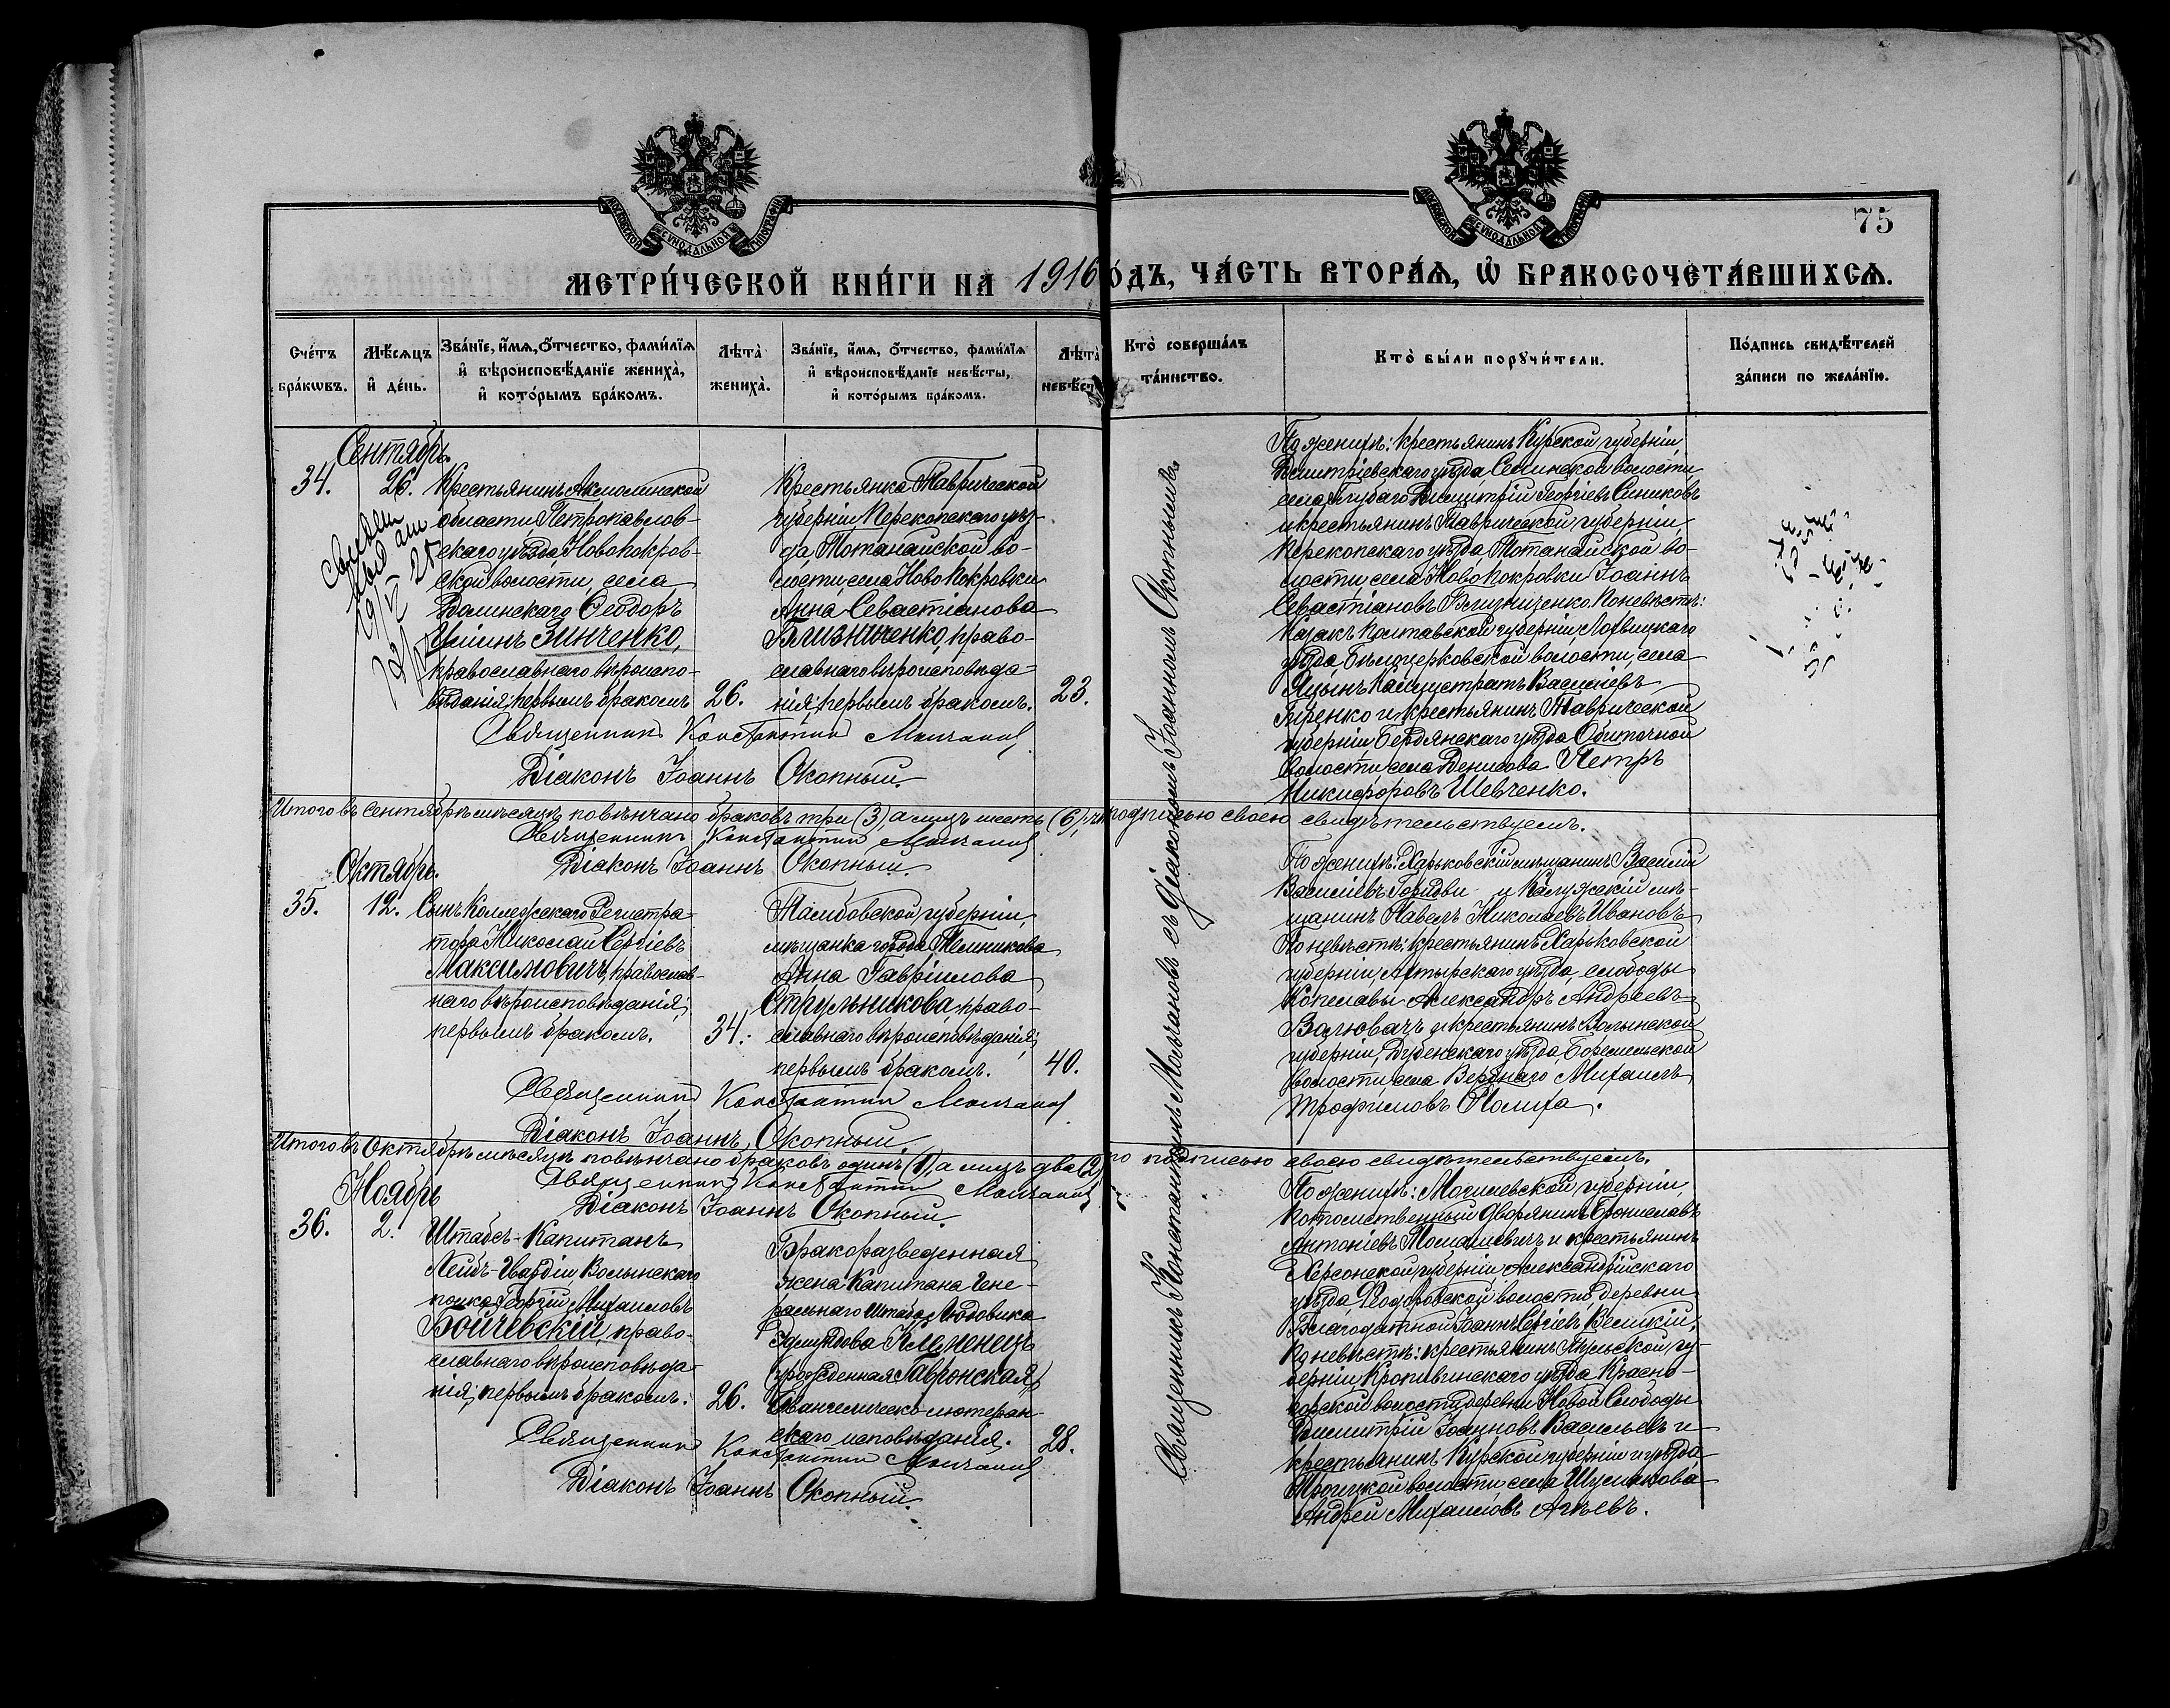 75
МЕТРИ́ЧЕСКОЙ КНИ́ГИ НА 1916 ГО́ДЪ, ЧА́СТЬ ВТОРА́Ѧ, Ѡ҆ БРАКОСОЧЕТА́ВШИХСѦ.
Сче́тъ бра́кѡвъ.
Мѣ́сѧцъ и҆ де́нь.
Зва́нїе, и҆́мѧ, ѻ҆́тчество, фами́лїѧ
и҆ вѣроисповѣ́данїе жениха̀,
и҆ кото́рымъ бра́комъ.
Лѣ́та̀ жениха̀.
Зва́нїе, и҆́мѧ, ѻ҆́тчество, фами́лїѧ
и҆ вѣроисповѣ́данїе невѣ́сты,
и҆ кото́рымъ бра́комъ.
Лѣ́та̀ невѣ́ст
Кто̀ соверша́лъ
та́инство.
Кто̀ бы́ли порꙋчи́тели.
По́дпись свидѣ́телей
за́писи по жела́нїю.
Сентябрь.
34.
26.
Крестьянинъ Акмолинской
области Петропавлов-
скаго уѣзда, Новопокров-
ской волости, села
Ѳеодоръ
Зинченко,
православнаго вѣроиспо-
вѣданія; первымъ бракомъ
26.
Крестьянка Таврической
губерніи Перекопскаго уѣз-
да Тотанайской во-
лости, села Новопокровки
Анна Севастіанова
Близниченко, право-
славнаго вѣроисповѣда-
нія; первымъ бракомъ.
23.
Священникъ Константинъ Молчановъ
Діаконъ Іоаннъ Окопный.
По женихѣ: крестьянинъ Курской губерніи,
Дмитріевскаго уѣзда,
села Димитрій Георгіевъ Синиковъ
и крестьянинъ Таврической губерніи
Перекопскаго уѣзда, Тотанайской во-
лости, села Новопокровки Іоаннъ
Севастіановъ Близниченко. По невѣстѣ:
Казакъ Полтавской губерніи Лохвицкаго
уѣзда Бѣлоцерковской волости, села
Васильевъ
и крестьянинъ Таврической
губерніи, Бердянскаго уѣзда Обиточной
волости, села Денисова Петръ
Никифоровъ Шевченко.
Итого въ Сентябрѣ мѣсяцѣ повѣнчано браковъ три (3), а лицъ шесть (6), подписью своею свидѣтельствуемъ.
Священникъ Константинъ Молчановъ
Діаконъ Іоаннъ Окопный.
Октябрь.
35.
12.
Сынъ Коллежскаго Регистра-
тора Николай Сергіевъ
Максимовичъ, православ-
наго вѣроисповѣданія;
первымъ бракомъ.
34.
Тамбовской губерніи,
мѣщанка города Темникова
Анна Гавріилова
Стрѣльникова, право-
славнаго вѣроисповѣданія;
первымъ бракомъ.
40.
Священникъ Константинъ Молчановъ
Діаконъ Іоаннъ Окопный.
По женихѣ: Харьковскій мѣщанинъ Василій
Васильевъ и Калужскій мѣ-
щанинъ Павелъ Николаевъ Ивановъ
По невѣстѣ: крестьянинъ Харьковской
губерніи, Ахтырскаго уѣзда, слободы
Александръ Андреевъ
и крестьянинъ Волынской
губерніи, Дубенскаго уѣзда Боремельской
волости, села Вербнаго Михаилъ
Трофимовъ
Итого въ Октябрѣ мѣсяцѣ повѣнчано браковъ одинъ (1), а лицъ два (2) подписью своею свидѣтельствуемъ.
Священникъ Константинъ Молчановъ
Діаконъ Іоаннъ Окопный.
Ноябрь
36.
2.
Штабсъ-Капитанъ
Лейбъ-Гвардіи Волынскаго
полка Георгій Михаиловъ
Бойчевскій, право-
славнаго вѣроисповѣда-
нія; первымъ бракомъ.
26.
Бракоразведенная
жена Капитана Гене-
ральнаго Штаба, Людовика
Эдмундова Клеменецъ
(урожденная Гавронская)
Евангелическо-лютеран-
скаго исповѣданія.
28.
Священникъ Константинъ Молчановъ
Діаконъ Іоаннъ Окопный.
По женихѣ: Могилевской губерніи,
потомственный дворянинъ Брониславъ
Антоніевъ Томашевичъ и крестьянинъ
Херсонской губерніи, Александрійскаго
уѣзда, Ѳеодоровской волости, деревни
Благодатной Іоаннъ Сергіевъ Великій,
По невѣстѣ: крестьянинъ Тульской гу-
берніи, Кропивинскаго уѣзда Красно-
горской волости, деревни Новой Слободы
Димитрій Іоанновъ Васильевъ и
крестьянинъ Курской губерніи и уѣзда
Троицкой волости, села
Андрей Михаиловъ Агѣевъ.
Священникъ Константинъ Молчановъ съ діакономъ Іоанномъ Окопнымъ.